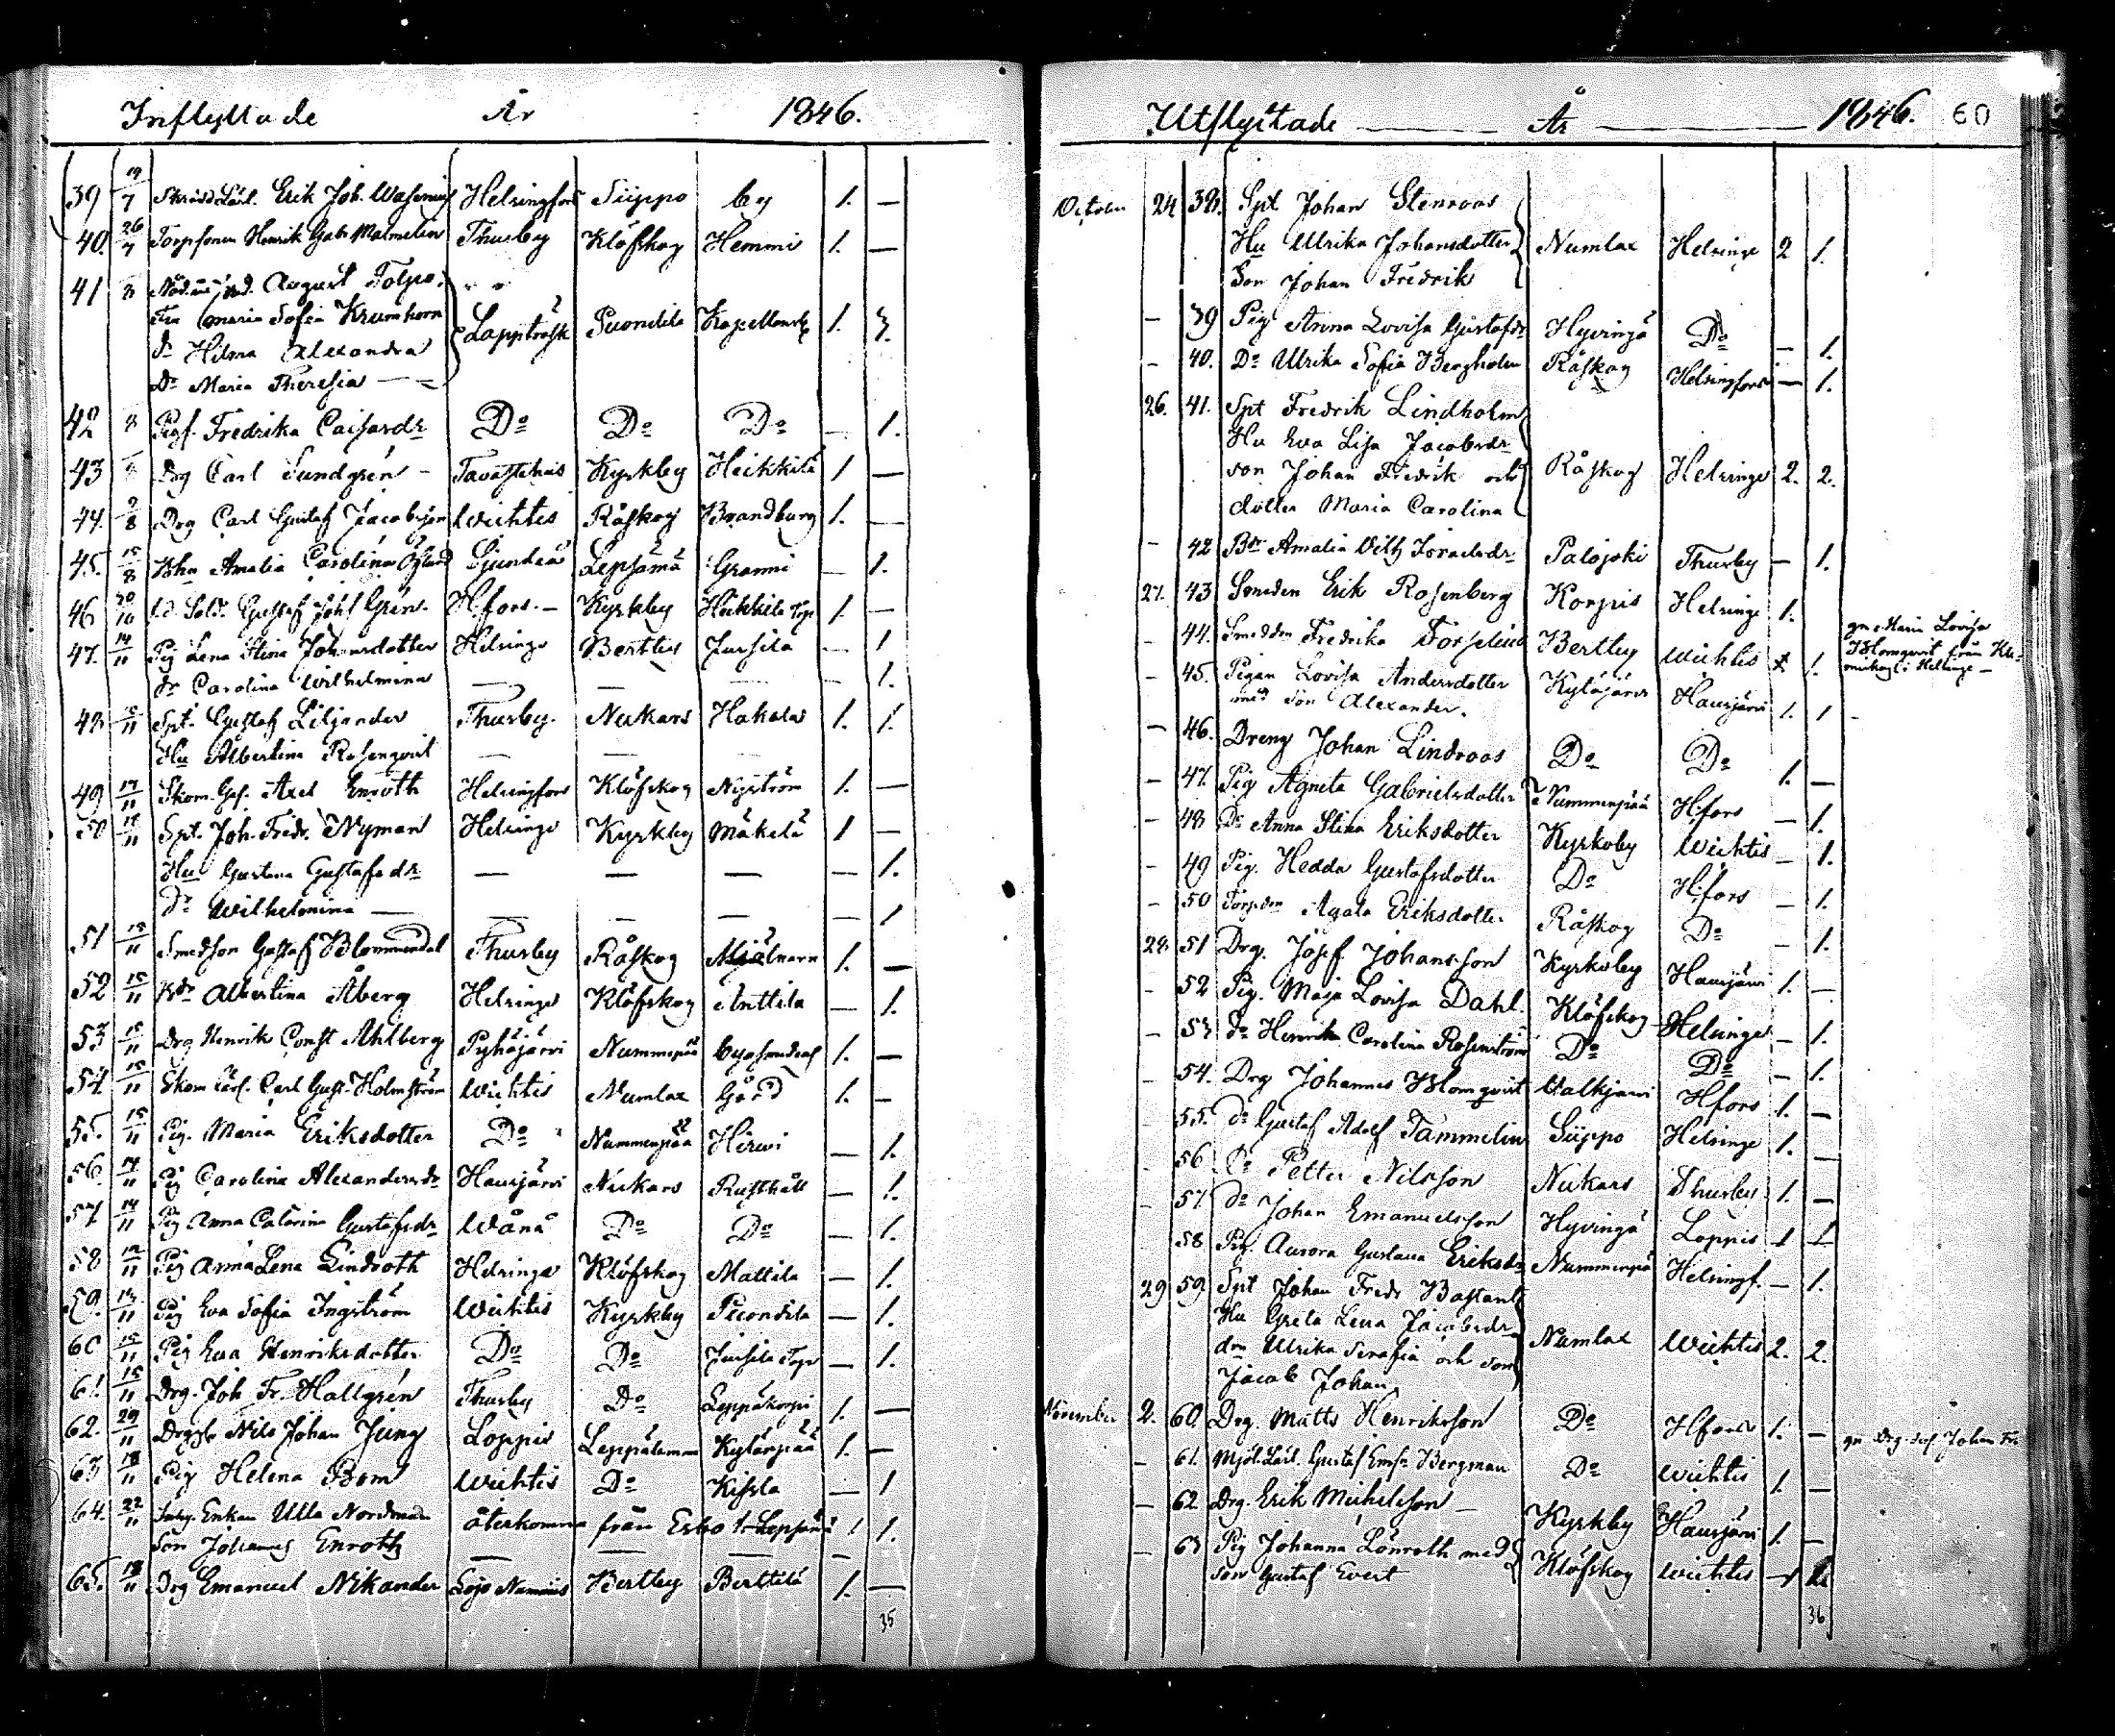 Inflyttade År 1846.
39 19/7 Skrädd.Lärl. Erik Joh. Wasenius Helsingfors Siippo by 1. —
40. 26/7 Torpsonen Henrik Gabr Malmelin Thusby Klöfskog Hemmi 1. —
41 8 August Tolpo
Fru Maria Sofia Krumhorn Lappträsk Puondila Kapellansb 1. 3.
dr Hilma Alexandra
Do Maria Theresia —
42 8 Pigf. Fredrika Caisasdr Do Do Do — 1.
43 8 Drg Carl Sundgrén — Tavastehus Kyrkby Heikkilä 1 —
44. 9/8 Drg Carl Gustaf Jacobsson Wichtis Råskog Brandburg 1. —
45. 15/8 Amalia Carolina Öglund Sjundeå Lepsämä Granni — 1.
46 30/10 Sold. Gustaf Joh Grén. H:fors. — Kyrkby Heikkilä Torp 1. —
47. 14/11 Pig Lena Stina Johansdotter Helsinge Bertby Jussila — 1
dr Carolina Wilhelmina — — — — 1.
48 15/11 Spt. Gustaf Liljander Thusby. Nukars Hakala 1. 1.
Hu Albertina Rosenqvist — —
49 17/11 Skom. Ges. Axel Enroth Helsingfors Klöfskog Nyström 1. —
50 18/11 Spt. Joh. Fredr. Nyman Helsinge Kyrkby Mäkelä 1 —
Hu Gustava Gustafsdr — — — — 1.
dr Wilhelmina — — — — — 1
51 15/11 Smedson Gustaf Blommendal Thusby Råskog Mjölnarn 1. —
52 15/11 Albertina Åberg Helsinge Klöfskog Anttila — 1.
53 15/11 Drg Henrik Const Ahlberg Pyhäjärvi Nummenpää 1. —
54. 15/11 Skom Lärl. Carl Gust. Holmström Wichtis Numlax Gård 1. —
55. 15/11 Pig. Maria Eriksdotter Do Nummenpää Hirvi — 1.
56 14/11 Pig Carolina Alexandersdr Hausjärvi Nukars Rusthåll — 1.
57 14/11 Pig Anna Catarina Gustafsdr Wånå Do Do — 1.
58 12/11 Pig Anna Lena Lindroth Helsinge Klöfskog Mattila — 1.
59. 13/11 Pig Eva Sofia Ingström Wichtis Kyrkby Puondila — 1.
60 15/11 Pig Eva Henriksdotter Do Do Jussila Torp — 1.
61. 15/11 Drg. Joh Fr. Hallgrén Thusby Do Leppäkorpi 1. —
62. 29/11 Nils Johan Jung Loppis Leppälammi Kytänpää 1. —
63 18/11 Pig Helena Bom Wichtis Do Kissla — 1
64. 22/11 Enkan Ulla Nordman återkomna från Esbo t. Lepsämä 1 1.
Son Johannes Enroth — — — —
65. 18/11 Drg Emanuel Nikander Lojo Nummis Bertby Berttilä 1. —
35
Utflyttade — År — 1846. 60
October 24 38. Spt Johan Stenroos
Hu Ulrika Johansdotter Numlax Helsinge 2 1.
Son Johan Fredrik
— 39 Pig Anna Lovisa Gustafsdr Hyvingä Do — 1.
— 40. Do Ulrika Sofia Bergholm Råskog Helsingfors — 1.
26. 41. Spt Fredrik Lindholm
Hu Eva Lisa Jacobsdr
son Johan Fredrik och Råskog Helsinge 2. 2.
dotter Maria Carolina
— 42 Amalia Vilh Israelsdr Palojoki Thusby — 1.
27. 43 Smeden Erik Rosenberg Korpis Helsinge 1.
— 44. Fredrika Forselius Bertby Wichtis 1.
gn Maria Lovisa
Blomqvist från
i Helsinge —
— 45. Pigan Lovisa Andersdotter Kytäjärvi Hausjärvi 1. 1
med Son Alexander.
— 46. Dreng Johan Lindroos Do Do 1. —
— 47. Pig Agneta Gabrielsdotter Nummenpää H:fors — 1.
— 48 Do Anna Stina Eriksdotter Kyrkoby Wichtis — 1.
— 49 Pig. Hedda Gustafsdotter Do H:fors — 1.
— 50 Agata Eriksdotter Råskog Do — 1.
28. 51 Drg. Josef Johansson Kyrkoby Hausjärvi 1. —
— 52 Pig. Maja Lovisa Dahl. Klöfskog Helsinge — 1.
— 53 do Henrika Carolina Rosenström Do Do — 1.
— 54. Drg Johannes Blomqvist Valkjärvi H:fors 1. —
55. do Gustaf Adolf Tammelin Siippo Helsinge 1. —
— 56 Do Petter Nilsson Nukars Thusby 1. —
— 57 do Johan Emanuelsson Hyvingä Loppis 1
58 Pig. Aurora Gustava Eriksdr Nummenpä Helsingf. — 1.
29 59 Spt Johan Fredr Bastant
Hu Greta Lena Jacobsdr
dra Ulrika Serafia och son Numlax Wichtis 2. 2.
Jacob Johan
November 2. 60. Drg. Matts Henriksson Do H:fors 1. —
gn Drg. Josef Johan Fr.
— 61. Mjöl.Lärl. Gustaf Bergman Do Wichtis 1. —
— 62 Drg. Erik Michelsson — Kyrkby Hausjärvi 1. —
— 63 Pig Johanna Lönroth med Klöfskog Wichtis
son Gustaf Evert
36